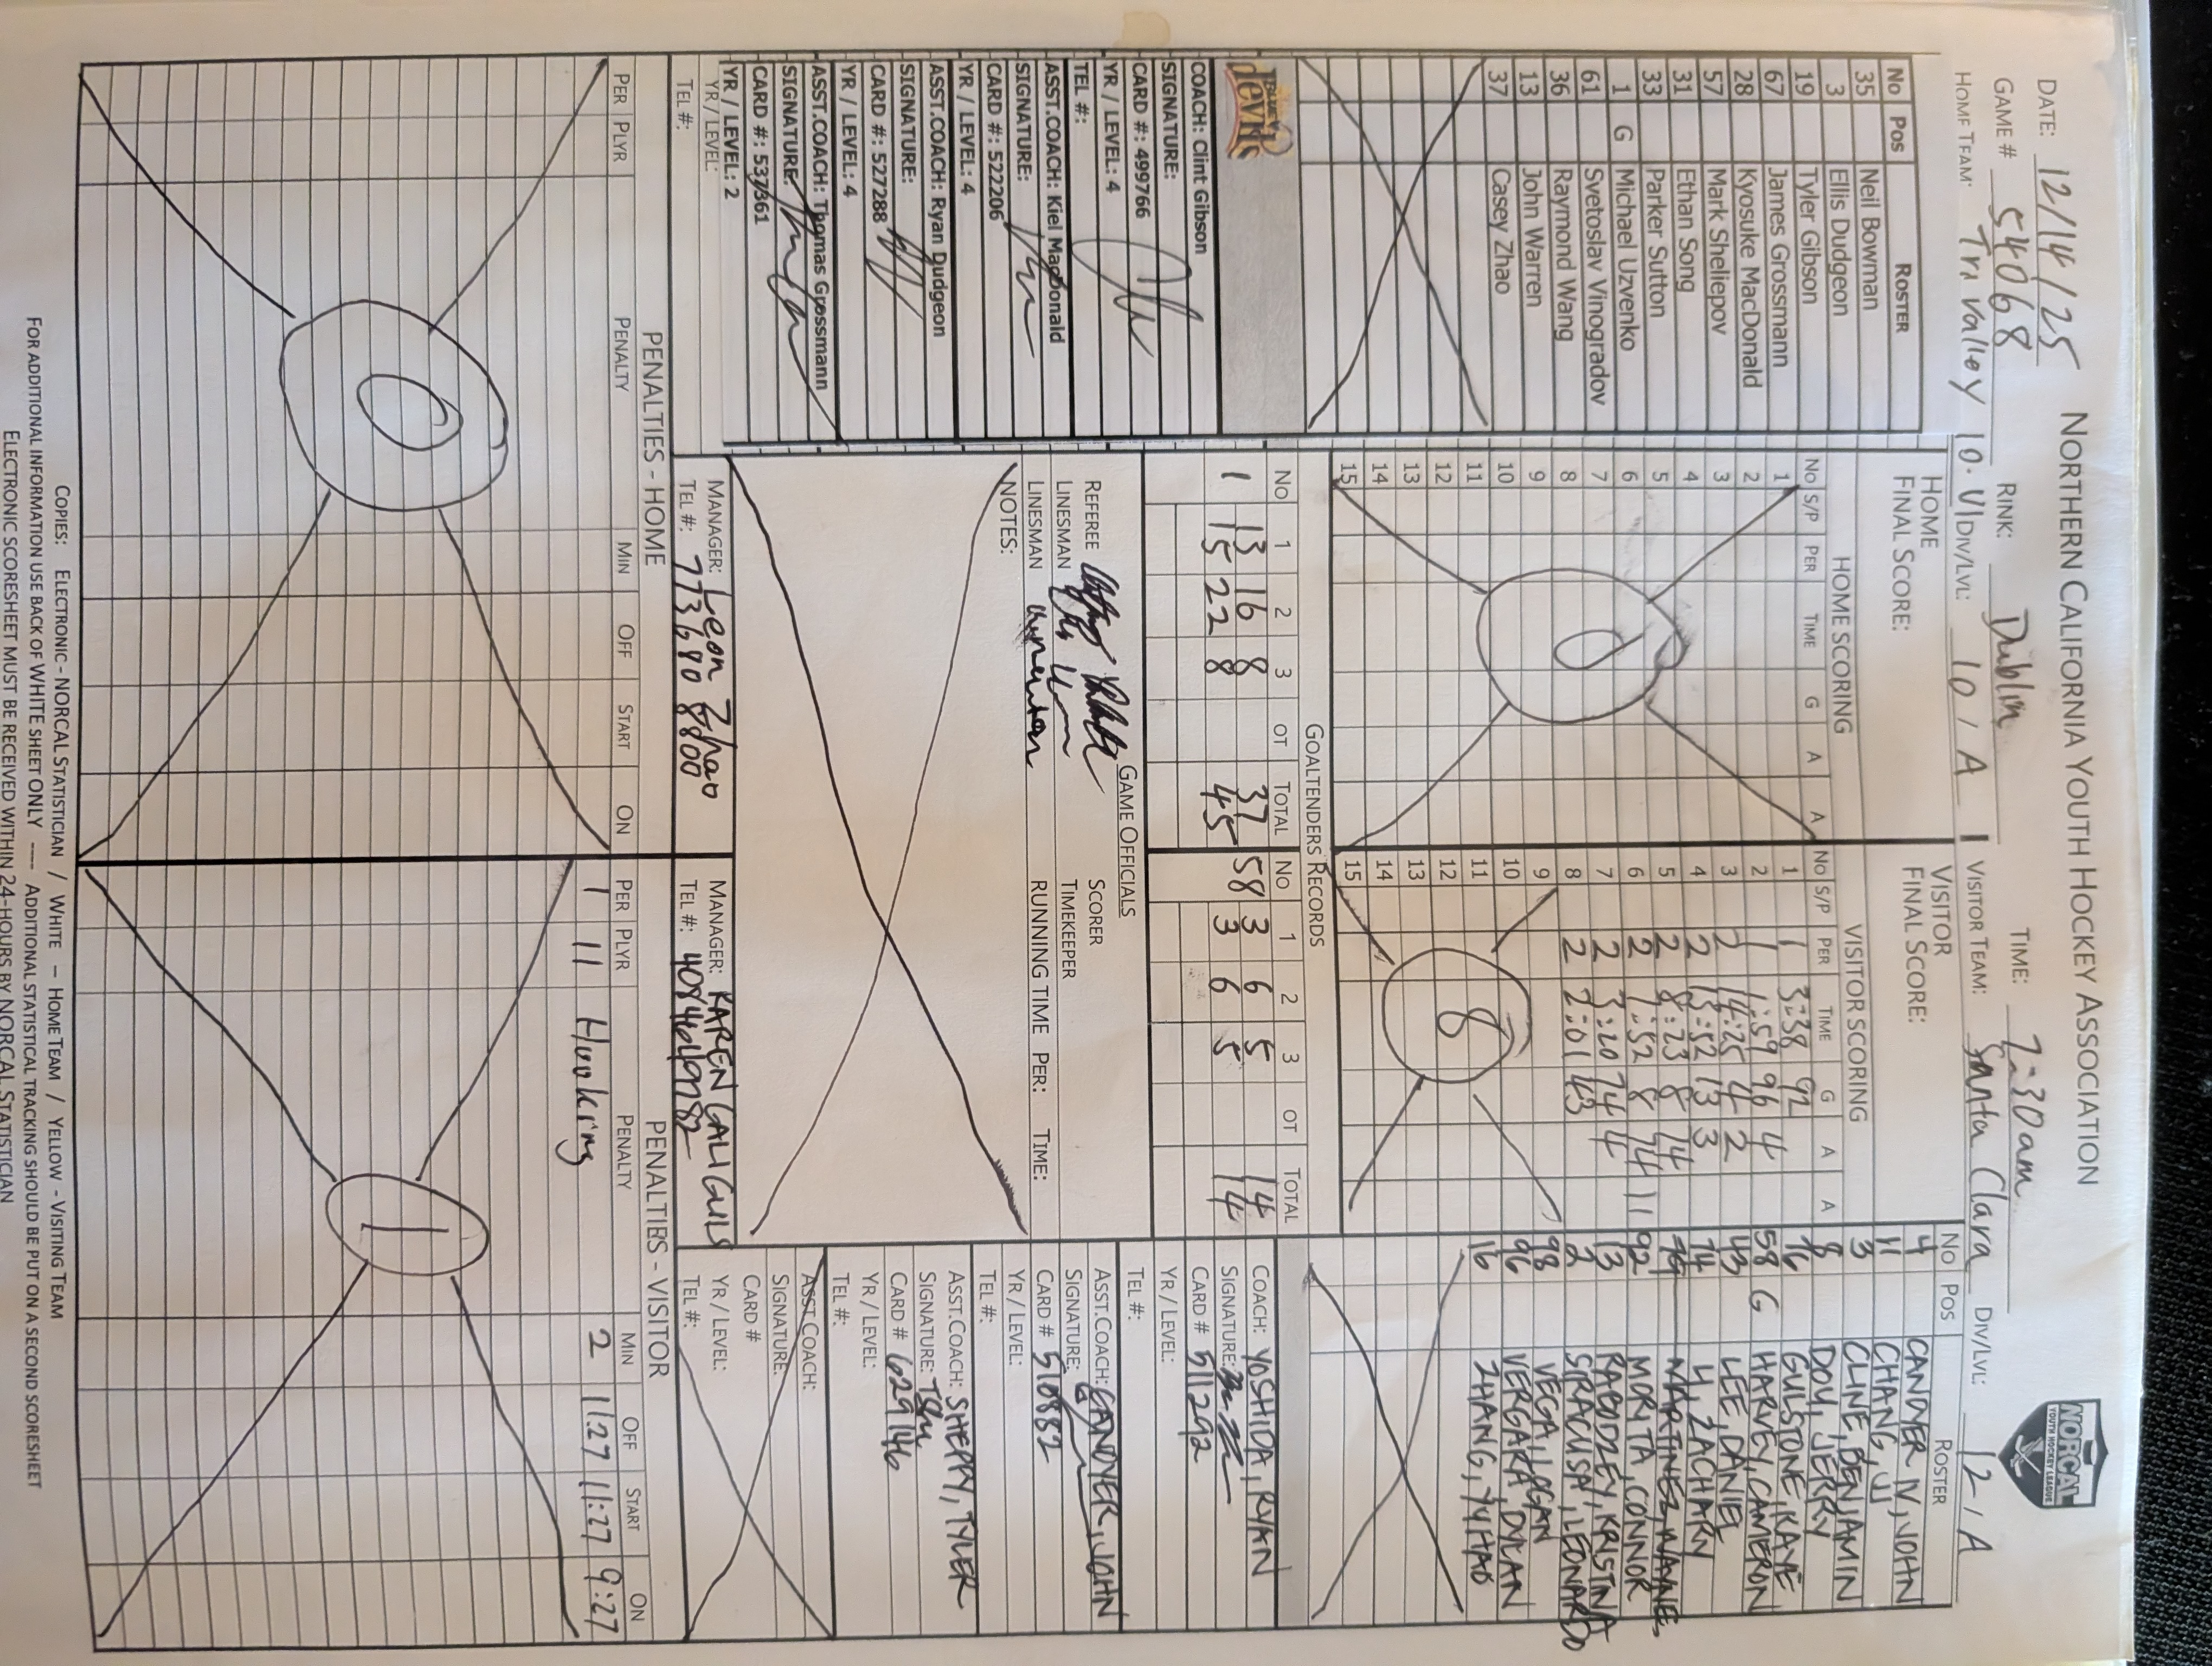 NORTHERN CALIFORNIA YOUTH HOCKEY ASSOCIATION
NORCAL
YOUTH HOCKEY LEAGUE
DATE: 12/14/25
GAME # 54068 RINK: Dublin TIME: 7:30am
HOME TEAM: Tri Valley 10-V1 DIV/LVL: 10 / A VISITOR TEAM: Santa Clara DIV/LVL: 12 / A
No Pos ROSTER
35 Neil Bowman
3 Ellis Dudgeon
19 Tyler Gibson
67 James Grossmann
28 Kyosuke MacDonald
57 Mark Sheliepov
31 Ethan Song
33 Parker Sutton
1 G Michael Uzvenko
61 Svetoslav Vinogradov
36 Raymond Wang
13 John Warren
37 Casey Zhao
devils
COACH: Clint Gibson
SIGNATURE:
CARD #: 499766
YR / LEVEL: 4
TEL #:
ASST.COACH: Kiel MacDonald
SIGNATURE:
CARD #: 522206
YR / LEVEL: 4
ASST.COACH: Ryan Dudgeon
SIGNATURE:
CARD #: 527288
YR / LEVEL: 4
ASST.COACH: Thomas Grossmann
SIGNATURE:
CARD #: 537361
YR / LEVEL: 2
YR / LEVEL:
TEL #:
HOME
FINAL SCORE:
HOME SCORING
No S/P PER TIME G A A
1
2
3
4
5
6
7
8
9
10
11
12
13
14
15
0
VISITOR
FINAL SCORE:
VISITOR SCORING
No S/P PER TIME G A A
1 1 3:38 92
2 1 1:59 96 4
3 2 14:25 4 2
4 2 13:52 13 3
5 2 8:23 8 74
6 2 7:52 8 74 11
7 2 3:20 74 4
8 2 2:01 43
9
10
11
12
13
14
15
8
GOALTENDERS RECORDS
No 1 2 3 OT TOTAL No 1 2 3 OT TOTAL
13 16 8 37 3 6 5 14
1 15 22 8 45 58 3 6 5 14
GAME OFFICIALS
REFEREE SCORER
LINESMAN TIMEKEEPER
LINESMAN RUNNING TIME PER: TIME:
NOTES:
MANAGER: Leon Zhao
TEL #: 773 680 8800
MANAGER: KAREN CALIGUIS
TEL #: 4084649782
NO POS ROSTER
4 CANDYER IV, JOHN
11 CHANG, JJ
3 CLINE, BENJAMIN
8 DOU, JERRY
76 GULSTONE, KAYE
58 G HARVEY, CAMERON
43 LEE, DANIEL
74 LI, ZACHARY
MARTINEZ, WAYNE
92 MORITA, CONNOR
13 RABODZEY, KRISTINA
2 SIRACUSA, LEONARDO
98 VEGA, LOGAN
96 VERGARA, DYLAN
16 ZHANG, YUHAO
COACH: YOSHIDA, RYAN
SIGNATURE:
CARD # 511292
YR / LEVEL:
TEL #:
ASST.COACH: CANDYER, JOHN
SIGNATURE:
CARD # 510882
YR / LEVEL:
TEL #:
ASST.COACH: SHERRY, TYLER
SIGNATURE:
CARD # 629146
YR / LEVEL:
TEL #:
ASST.COACH:
SIGNATURE:
CARD #
YR / LEVEL:
TEL #:
PENALTIES - HOME
PER PLYR PENALTY MIN OFF START ON
0
PENALTIES - VISITOR
PER PLYR PENALTY MIN OFF START ON
1 11 Hooking 2 11:27 11:27 9:27
1
COPIES: ELECTRONIC - NORCAL STATISTICIAN / WHITE – HOME TEAM / YELLOW - VISITING TEAM
FOR ADDITIONAL INFORMATION USE BACK OF WHITE SHEET ONLY ---- ADDITIONAL STATISTICAL TRACKING SHOULD BE PUT ON A SECOND SCORESHEET
ELECTRONIC SCORESHEET MUST BE RECEIVED WITHIN 24-HOURS BY NORCAL STATISTICIAN